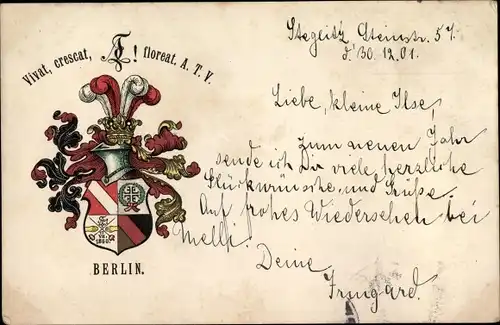 Vivat, crescat, ! floreat. A. T. V.
BERLIN.
Steglitz Steinstr. 57.
d. 30.12.01.
Liebe, kleine Ilse,
Zum neuen Jahr
sende ich Dir viele herzliche
Glückwünsche und Grüße.
Auf frohes Wiedersehen bei
Melli.
Deine
Irmgard.